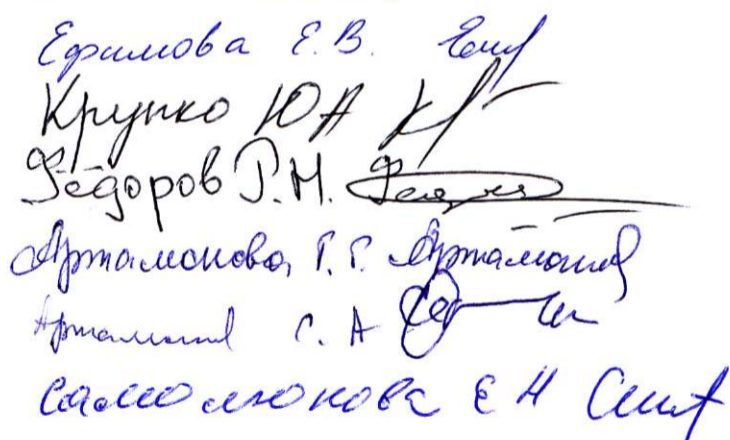 Ефимова Е.В.
Крупко Ю А
Фёдоров Р.Н.
Артамонова Г.Г. Артамонов
Артамонов С. А
Самолюкова Е Н